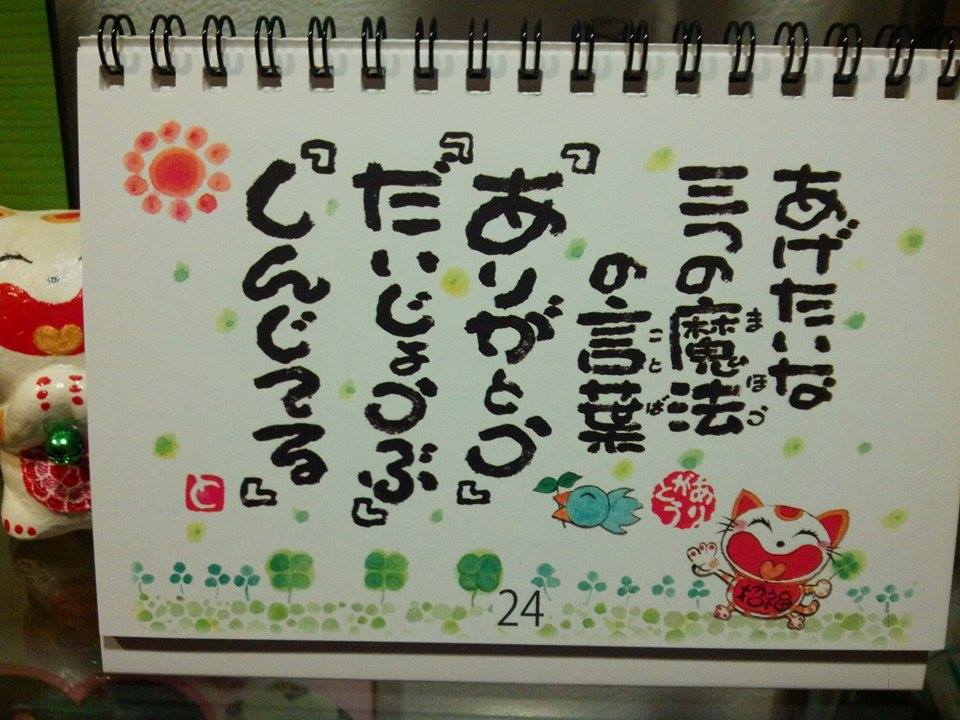 あげたいな
三つの魔法
の言葉
『ありがとう』
『だいじょうぶ』
『しんじてる』
まほう
ことば
ありがとう
と
24
招福